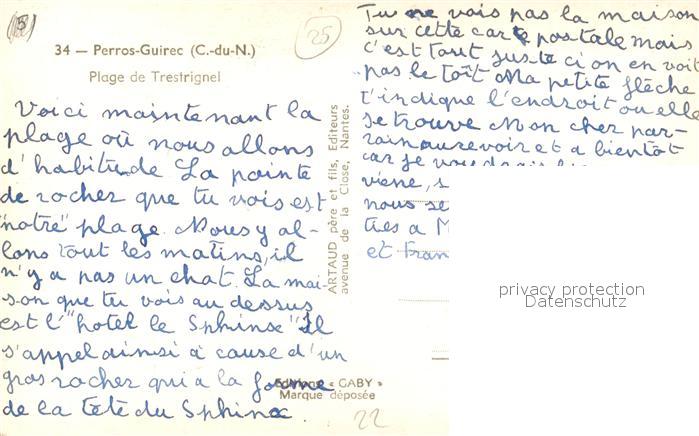 (B)
25
34 — Perros-Guirec (C.-du-N.)
Plage de Trestrignel
Voici maintenant la
plage où nous allons
d'habitude La pointe
de rocher que tu vois est
"notre" plage. Nous y al-
lons tout les matins, il
n'y a pas un chat. La mai-
son que tu vois au dessus
est l'"hotel le Sphinx" Il
s'appel ainsi à cause d'un
gros rocher qui a la forme
de la tête du Sphinx.
ARTAUD père et fils, Editeurs
avenue de la Close, Nantes.
Editions « GABY »
Marque déposée
22
Tu ne vois pas la maison
sur cette carte postale mais
c'est tout juste ci on en voit
pas le toît Ma petite flèche
t'indique l'endroit ou elle
se trouve Mon cher par-
rain aurevoir et a bientôt
car je voudrais
viene, s
nous se
ties a M
et Fran
privacy protection
Datenschutz